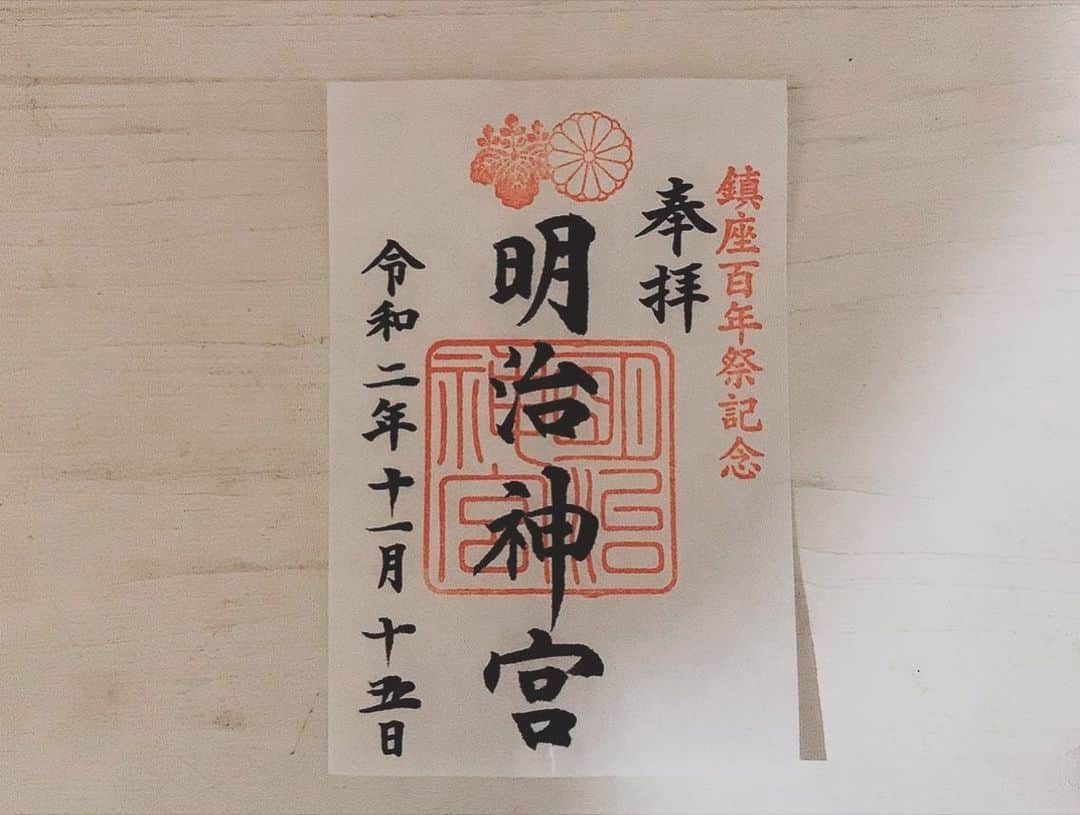 鎮座百年祭記念
奉拝
明治神宮
明治神宮
令和二年十一月十五日